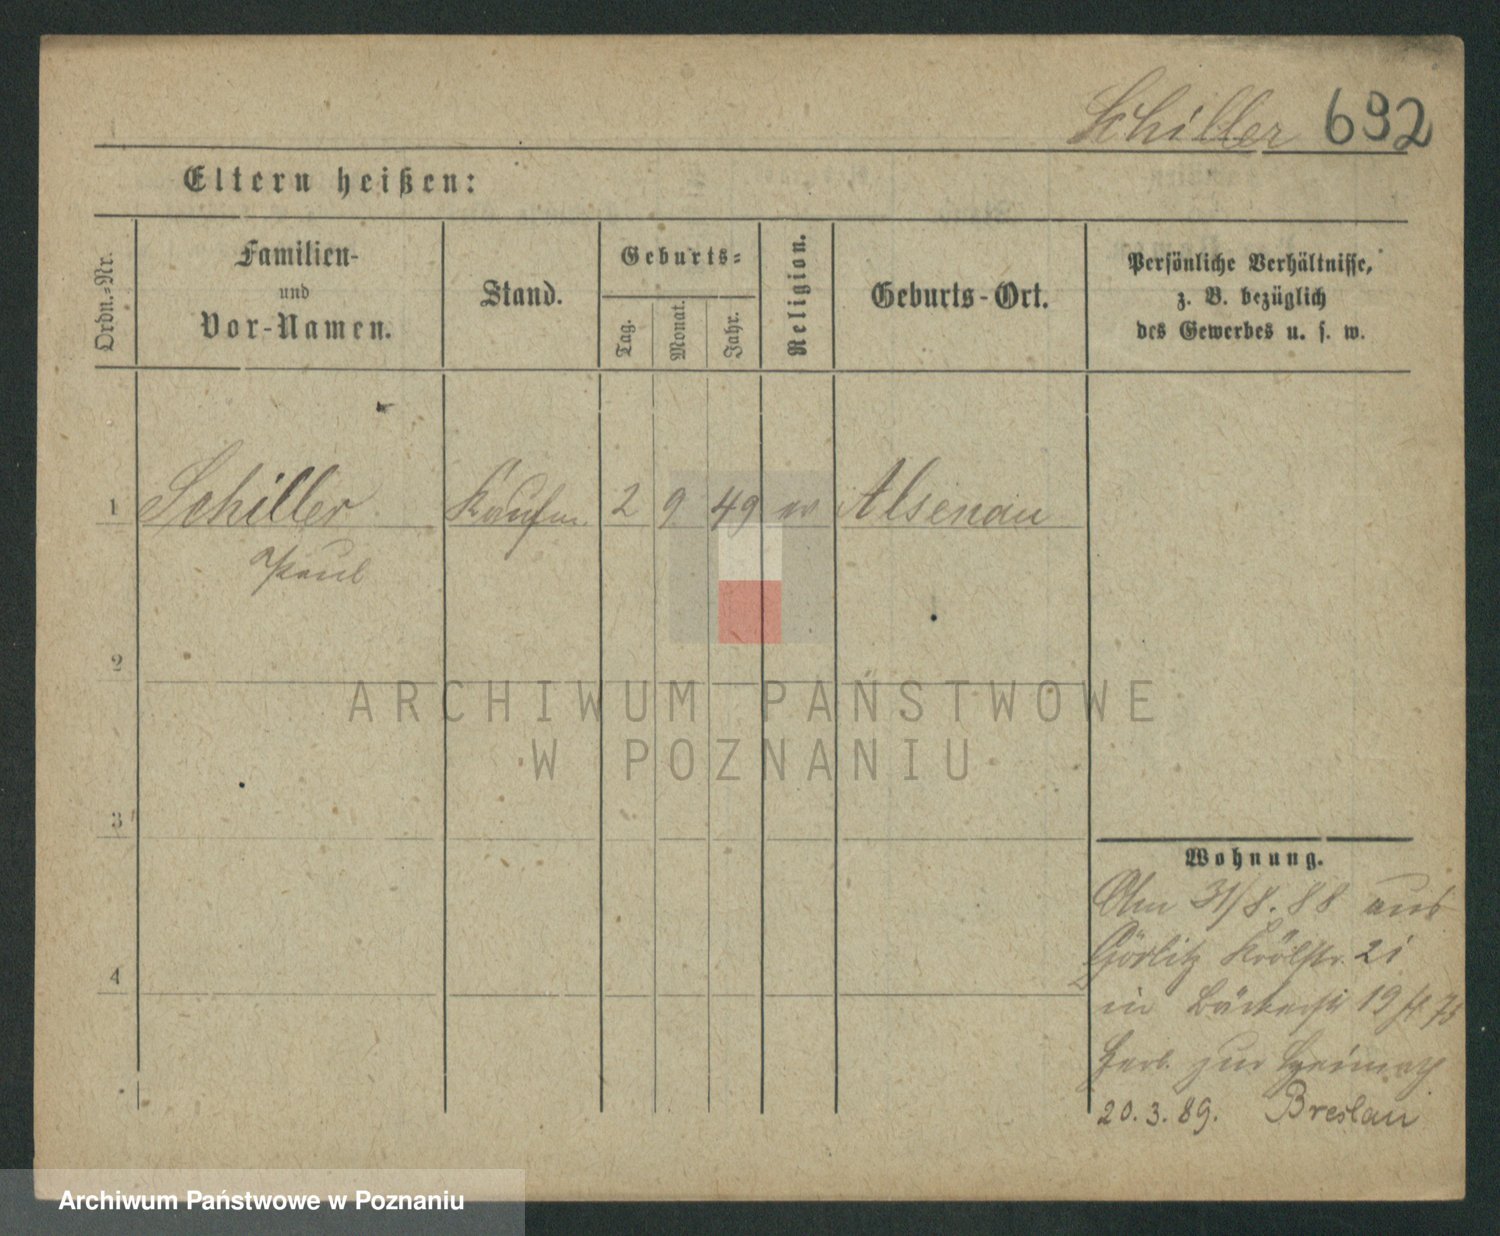 Schiller 692
Eltern heißen:
Ordn.-Nr.
Familien-
und
Vor-Namen.
Stand.
Geburts-
Tag.
Monat.
Jahr.
Religion.
Geburts-Ort.
Persönliche Verhältnisse,
z. B. bezüglich
des Gewerbes u. s. w.
1 Schiller Kaufm. 2 9 49 ev Alsenau
Paul
2
3
4
ARCHIWUM PAŃSTWOWE
W POZNANIU
Wohnung.
31/8. 88 aus
Görlitz Krölstr. 21
in Bäckerstr 19
Herb. zur Heimath
20. 3. 89. Breslau
Archiwum Państwowe w Poznaniu